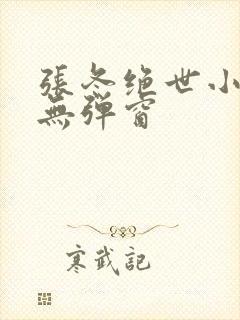 張冬绝世小
無彈窗
寒武記